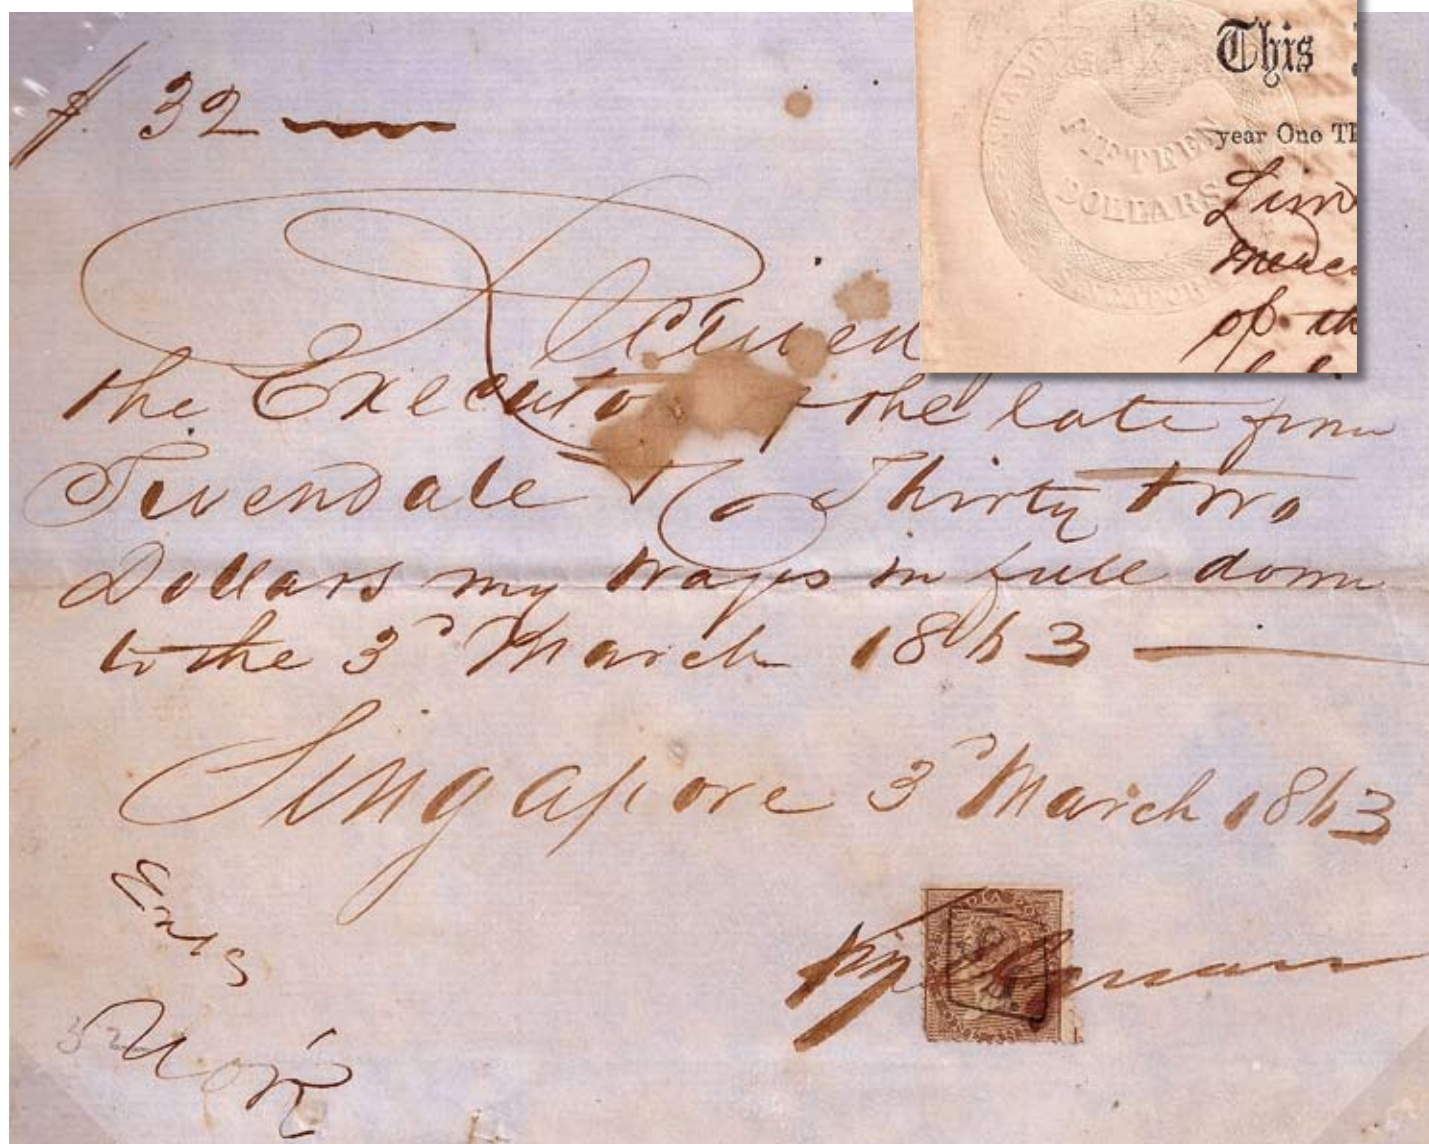 $ 32
Received
the Executo the late firm
Tivendale & Co Thirty two
Dollars my wages in full down
to the 3d March 1863
Singapore 3d March 1863
This
year One Th
Lim
of th
FIFTEEN
DOLLARS